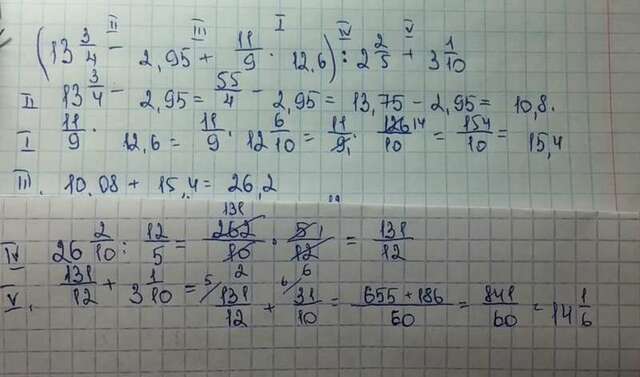 II III I IV V
(13 3/4 - 2,95 + 11/9 · 12,6) : 2 2/5 + 3 1/10
II 13 3/4 - 2,95 = 55/4 - 2,95 = 13,75 - 2,95 = 10,8.
I 11/9 · 12,6 = 11/9 · 12 6/10 = 11/9, · 126 14/10 = 154/10 = 15,4
III. 10.08 + 15,4 = 26,2
IV 26 2/10 : 12/5 = 262 131/10 2 · 5 1/12 = 131/12
V. 131/12 + 3 1/10 = 5/ 131/12 + 6/ 31/10 = 655 + 186/60 = 841/60 = 14 1/6